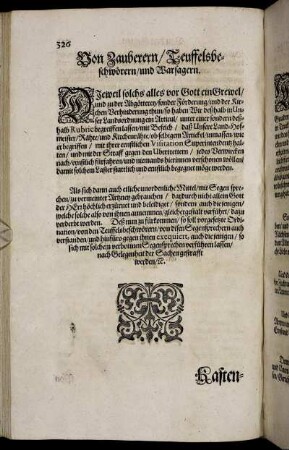 320
Von Zauberern/Teuffelsbe-
schwörern/und Warsagern.
DJeweil solchs alles vor Gott ein Grewel/
und zu der Abgötterey sonder Förderung/und der Kir-
chen Verhinderung
Wir deßhalb in Un-
ser Landsordnung einen Articul/ unter einer sondern deß-
halb Rubric begreiffen lassen/mit Befelch/ daß Unsere Land-Hof-
meister/Rähte/und Kirchenrähte/ob selbigem Articul/inmassen wie
er begriffen/ mit ihrer ernstlichen Visitation Superintendentz hal-
ten/ und mit der Straff gegen den Ubertrettern/ oder Verwürckten
nach-
fürfahren/und niemands hierinnen verschonen wöllen/
damit solchen Laster
Als sich dann auch etliche unordenliche Mittel/mit Segen spre-
chen/zu vermeinter Artzney gebrauchen/ dardurch nicht allein Gott
der HErr höchlich erzürnet und beleidiget/ sondern auch die jenigen/
welche solche also von ihnen annemmen/gleicher gestalt verführt/darzu
verderbt werden. Deß nun zu fürkommen/so soll vorgesetzte Ord-
nung von den Teuffelsbeschwörern/von disen Segensprechern auch
verstanden/und hinfüro gegen ihnen exequiert, auch die jenigen/ so
sich mit solchem verbottnem Segensprechen verführen lassen/
nach Gelegenheit der Sachen gestrafft
werden/etc.
Kasten-